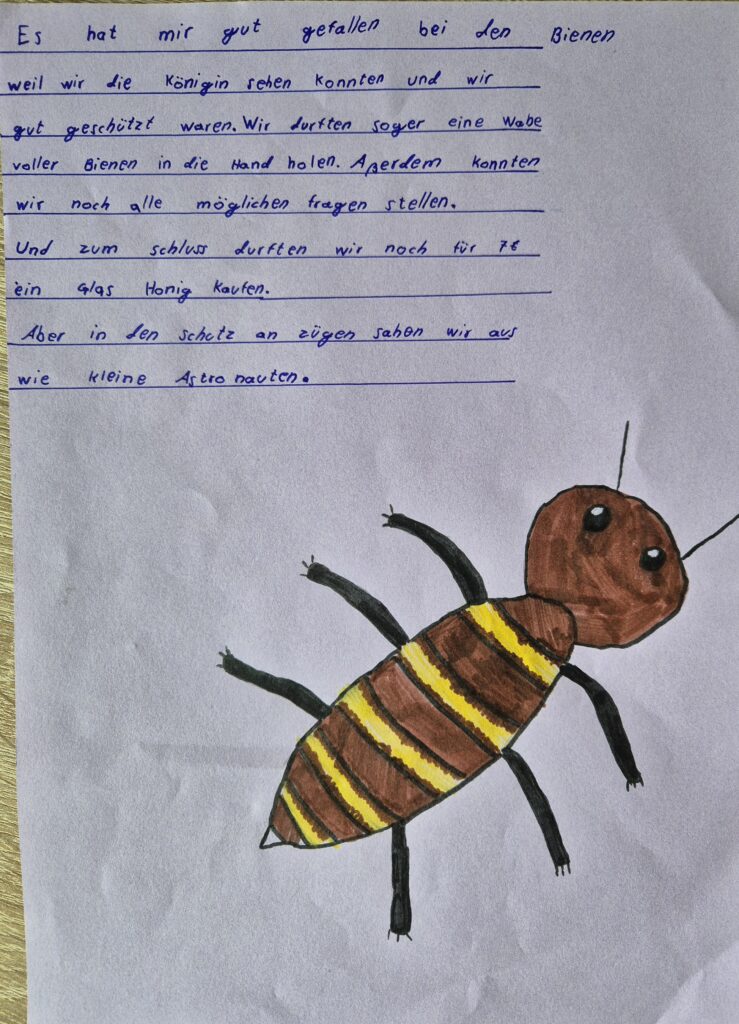 Es hat mir gut gefallen bei den Bienen
weil wir die Königin sehen konnten und wir
gut geschützt waren. Wir durften soger eine Wabe
voller Bienen in die Hand holen. Aßerdem konnten
wir noch alle möglichen fragen stellen.
Und zum schluss durften wir noch für 7€
ein Glas Honig kaufen.
Aber in den schutz an zügen sahen wir aus
wie kleine Astro nauten.